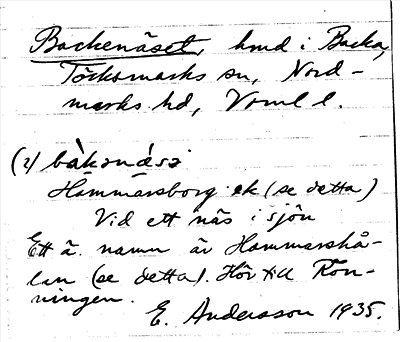 Backenäset, hmd i Backa,
Töcksmarks sn, Nord-
marks hd, Vrml l.
(2) bàkənä́sə
Hammarsborg ek (se detta)
Vid ett näs i sjön
Ett ä. namn är Hammarshå-
lan (se detta). Hör till Kon-
ningen.
E. Andersson 1935.